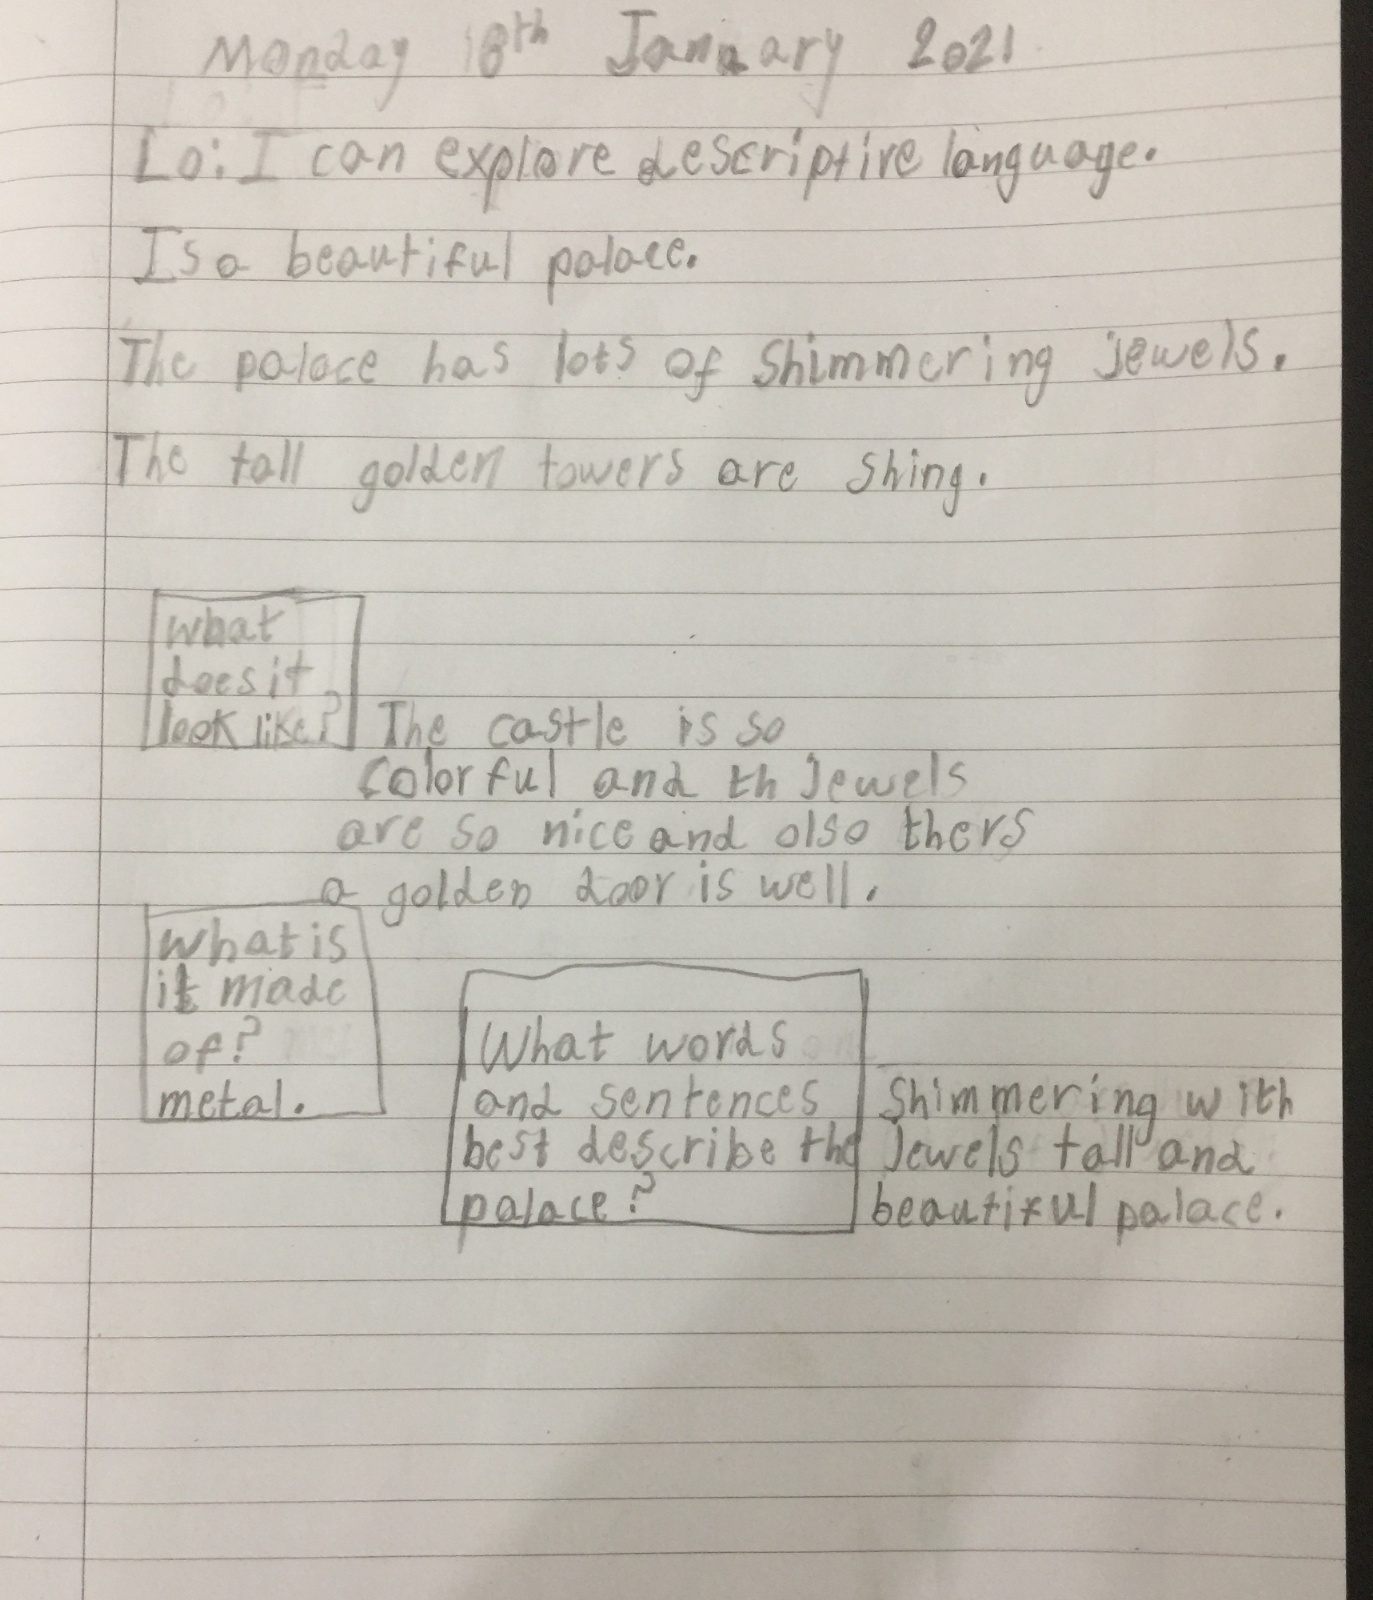 Monday 18th January 2021
Lo: I can explore descriptive language.
Is a beautiful palace.
The palace has lots of Shimmering jewels.
The tall golden towers are Shing.
what
does it
look like?
The castle is so
colorful and th Jewels
are so nice and also thers
a golden door is well.
what is
it made
of?
metal.
What words
and sentences
best describe the
palace?
Shimmering with
Jewels tall and
beautiful palace.